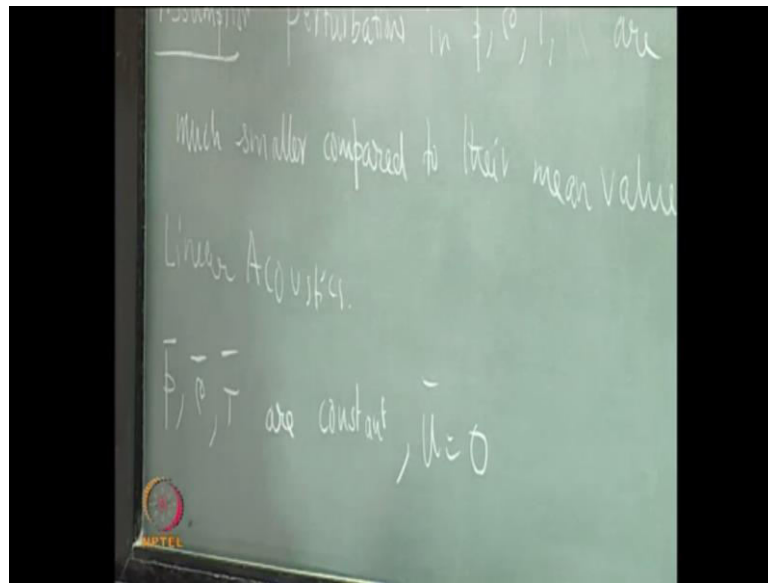 Assumption Perturbations in p, ρ, T, are
much smaller compared to their mean value
Linear Acoustics.
p̄, ρ̄, T̄ are constant, ū = 0
NPTEL